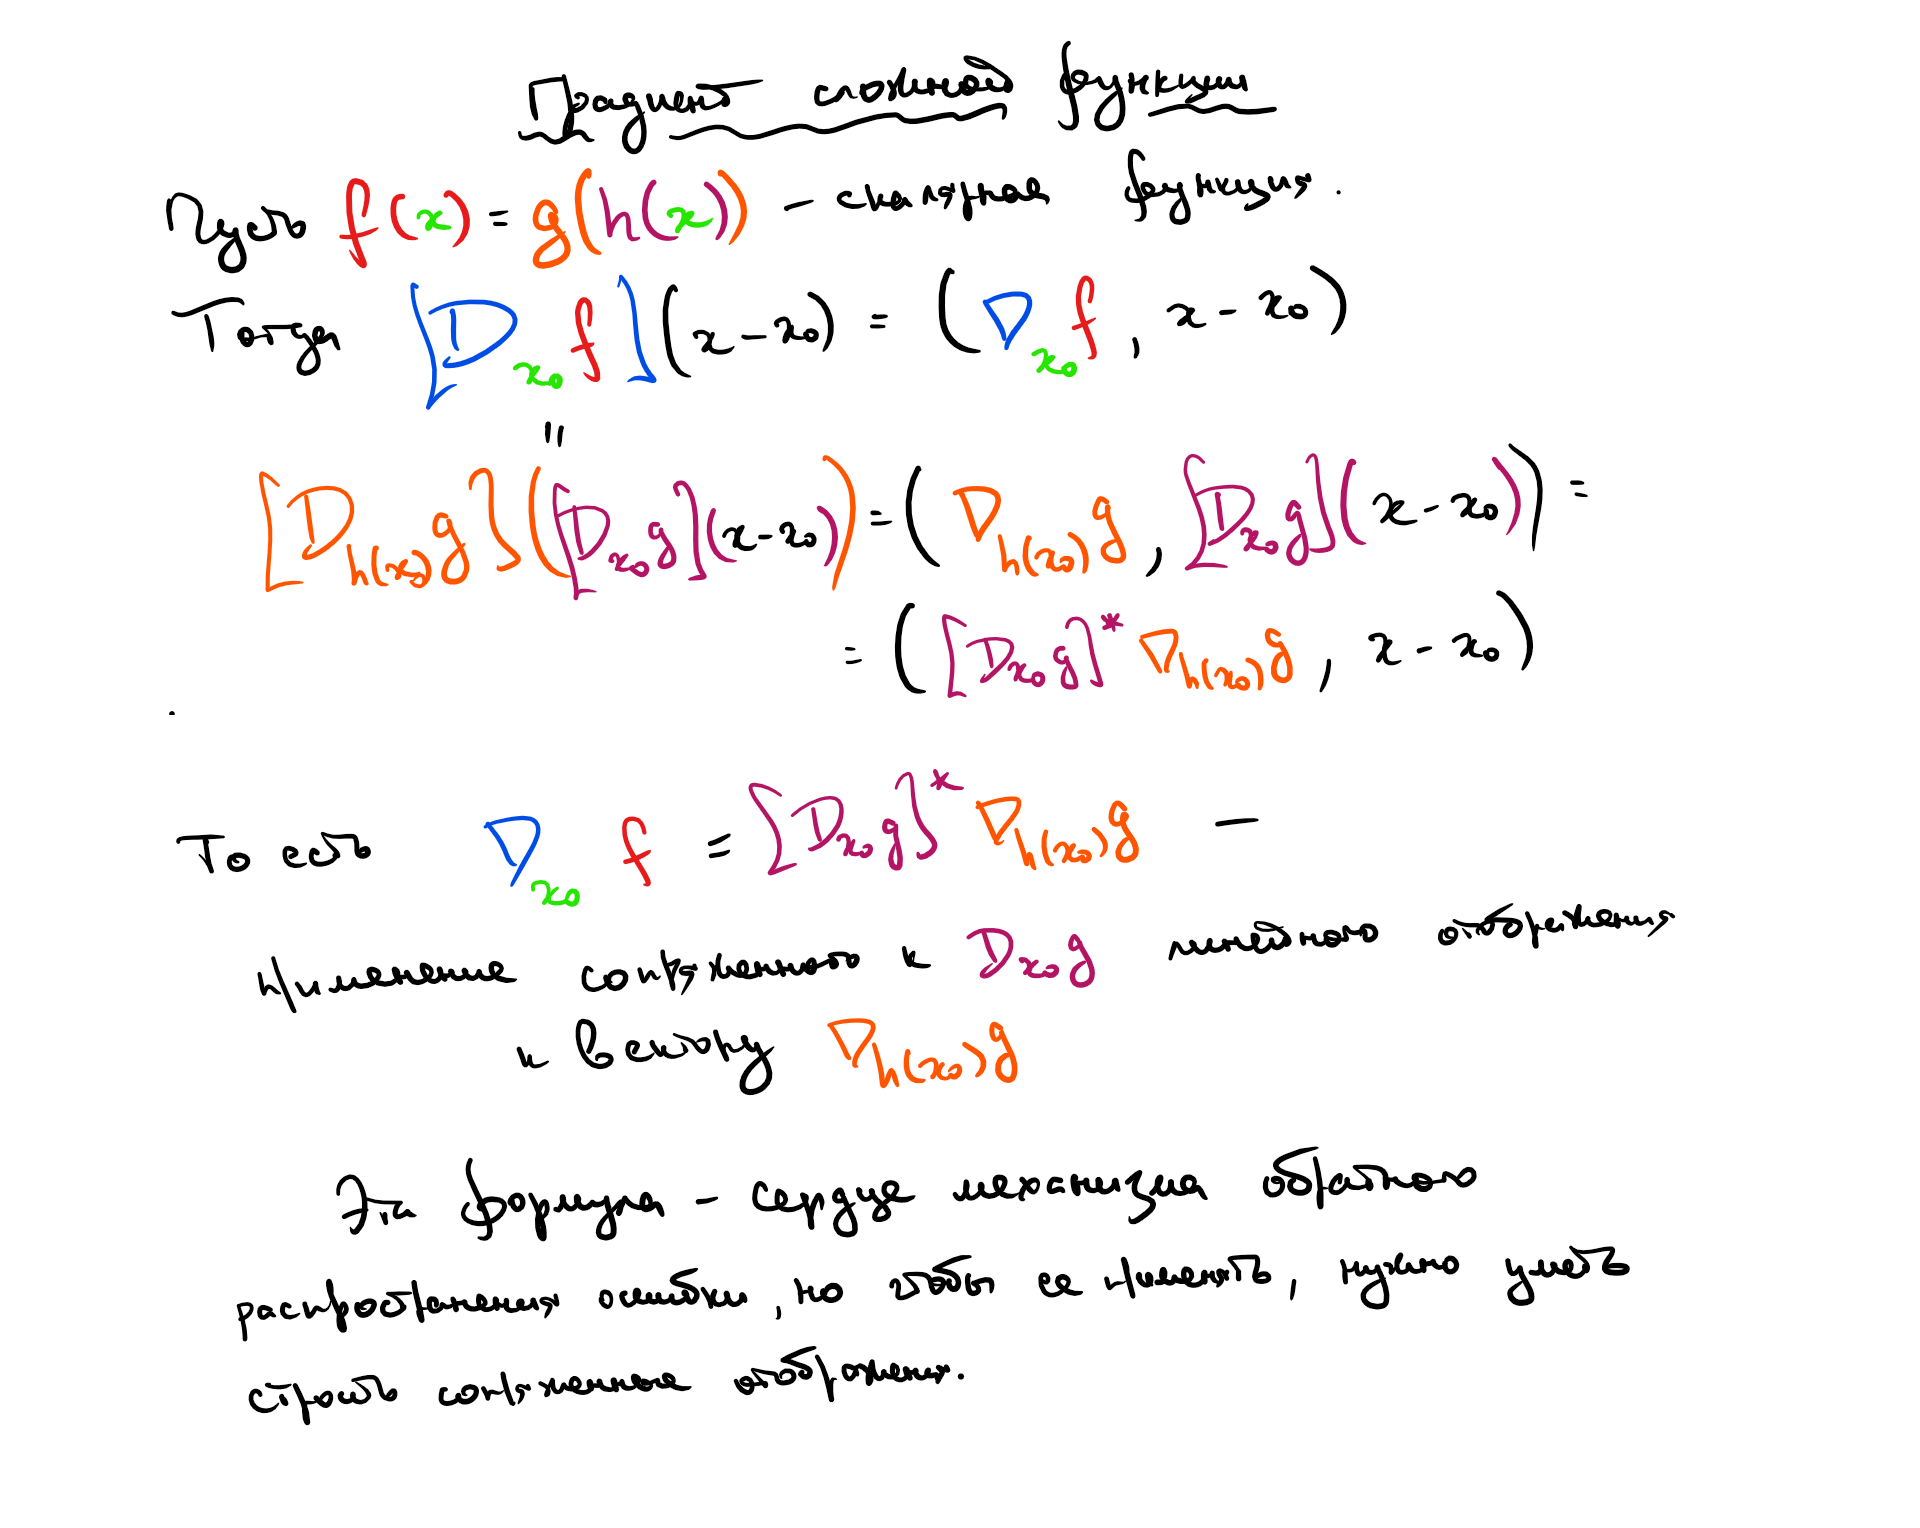 Градиент сложной функции
Пусть f(x) = g(h(x)) – скалярная функция.
Тогда [D_{x₀} f](x – x₀) = (∇_{x₀} f, x – x₀)
"
[D_{h(x₀)} g]([D_{x₀} g](x – x₀)) = (∇_{h(x₀)} g, [D_{x₀} g](x – x₀)) =
= ([D_{x₀} g]* ∇_{h(x₀)} g, x – x₀)
То есть ∇_{x₀} f = [D_{x₀} g]* ∇_{h(x₀)} g –
применение сопряженного к D_{x₀} g линейного отображения
к вектору ∇_{h(x₀)} g
Эта формула – сердце механизма обратного
распространения ошибки, но чтобы ее применять, нужно уметь
строить сопряженные отображения.